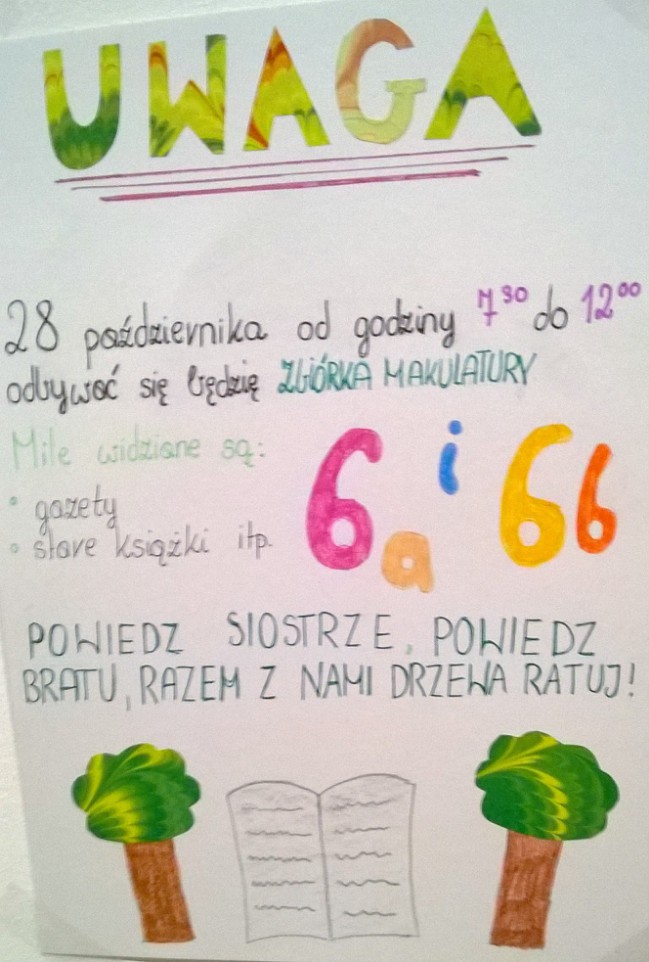 UWAGA
28 października od godziny 7³⁰ do 12⁰⁰
odbywać się będzię ZBIÓRKA MAKULATURY
Mile widziane są:
• gazety
• stare książki itp.
6a i 6b
POWIEDZ SIOSTRZE, POWIEDZ
BRATU, RAZEM Z NAMI DRZEWA RATUJ!